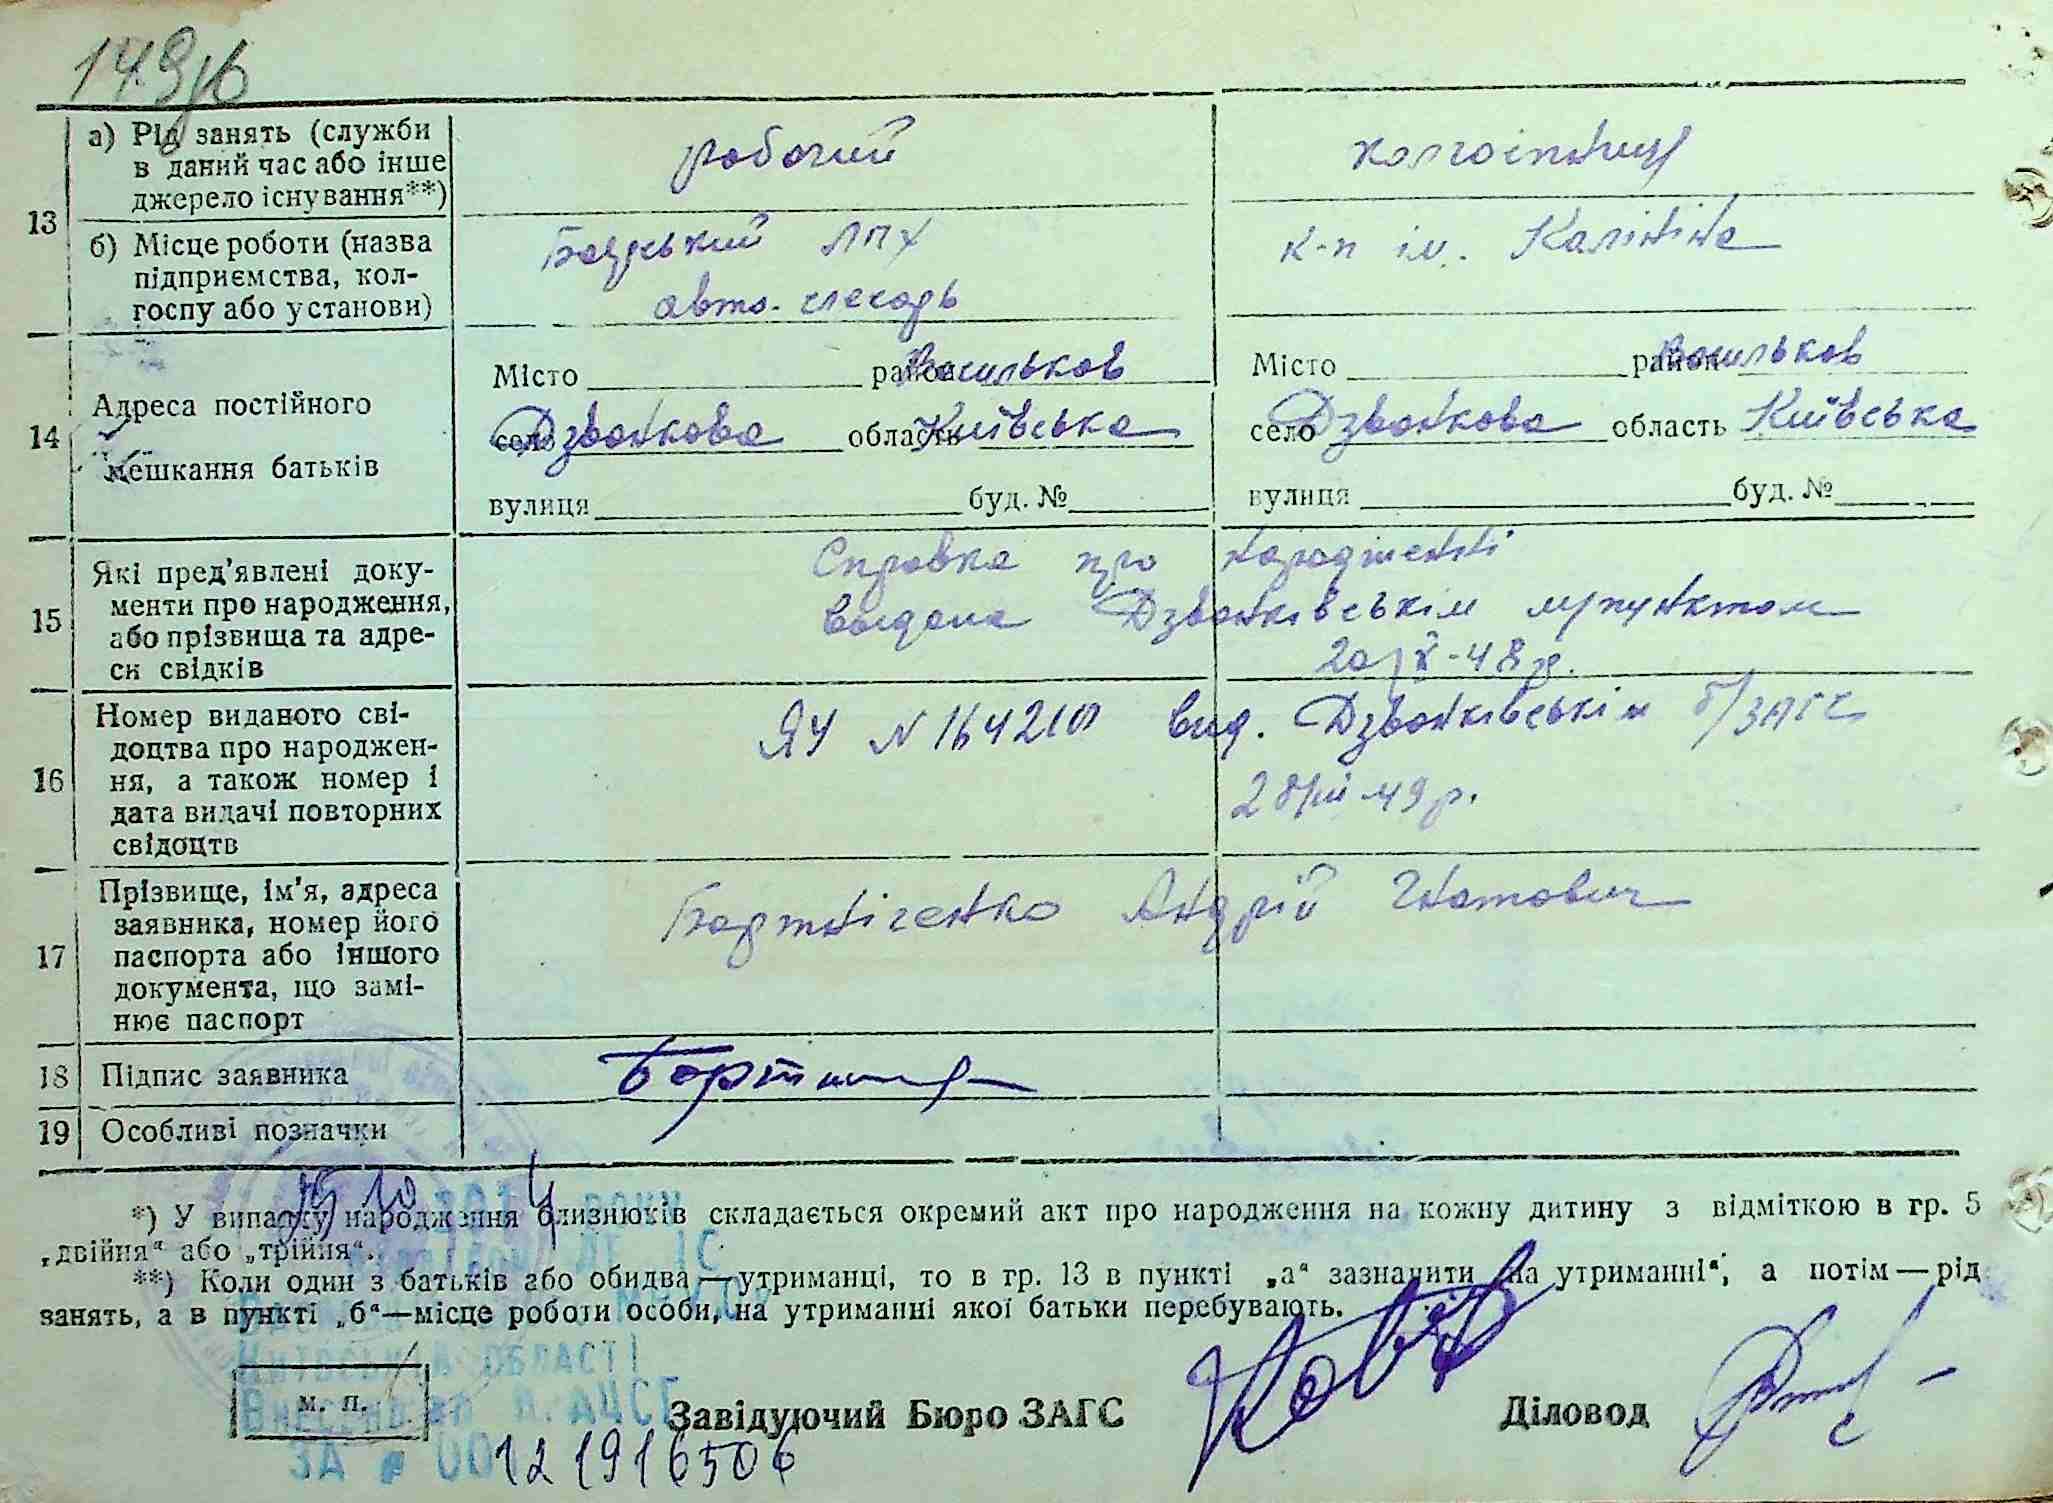 13
а) Рід занять (служби
в даний час або інше
джерело існування**)
робочий
колгоспниця
б) Місце роботи (назва
підприємства, кол-
госпу або установи)
ЛПХ
авто-слесарь
к-п ім. Калініна
14
Адреса постійного
мешкання батьків
Місто район Васильков
село Дзвонкова область Київська
вулиця буд. №
Місто район Васильков
село Дзвонкова область Київська
вулиця буд. №
15
Які пред'явлені доку-
менти про народження,
або прізвища та адре-
си свідків
Справка про народженні
видана Дзвонківськім мрпунктом
20/X-48 р.
16
Номер виданого сві-
доцтва про народжен-
ня, а також номер і
дата видачі повторних
свідоцтв
ЯЧ № вид. Дзвонківськім б/ЗАГС
49 р.
17
Прізвище, ім'я, адреса
заявника, номер його
паспорта або іншого
документа, що замі-
нює паспорт
Бортніченко Андрій Гнатович
18
Підпис заявника
19
Особливі позначки
*) У випадку народження близнюків складається окремий акт про народження на кожну дитину з відміткою в гр. 5
„двійня“ або „трійня“.
**) Коли один з батьків або обидва—утриманці, то в гр. 13 в пункті „а“ зазначити „на утриманні“, а потім—рід
занять, а в пункті „б“—місце роботи особи, на утриманні якої батьки перебувають.
Київська області
м. п.
Завідуючий Бюро ЗАГС
Діловод
ЗА № 00121916506